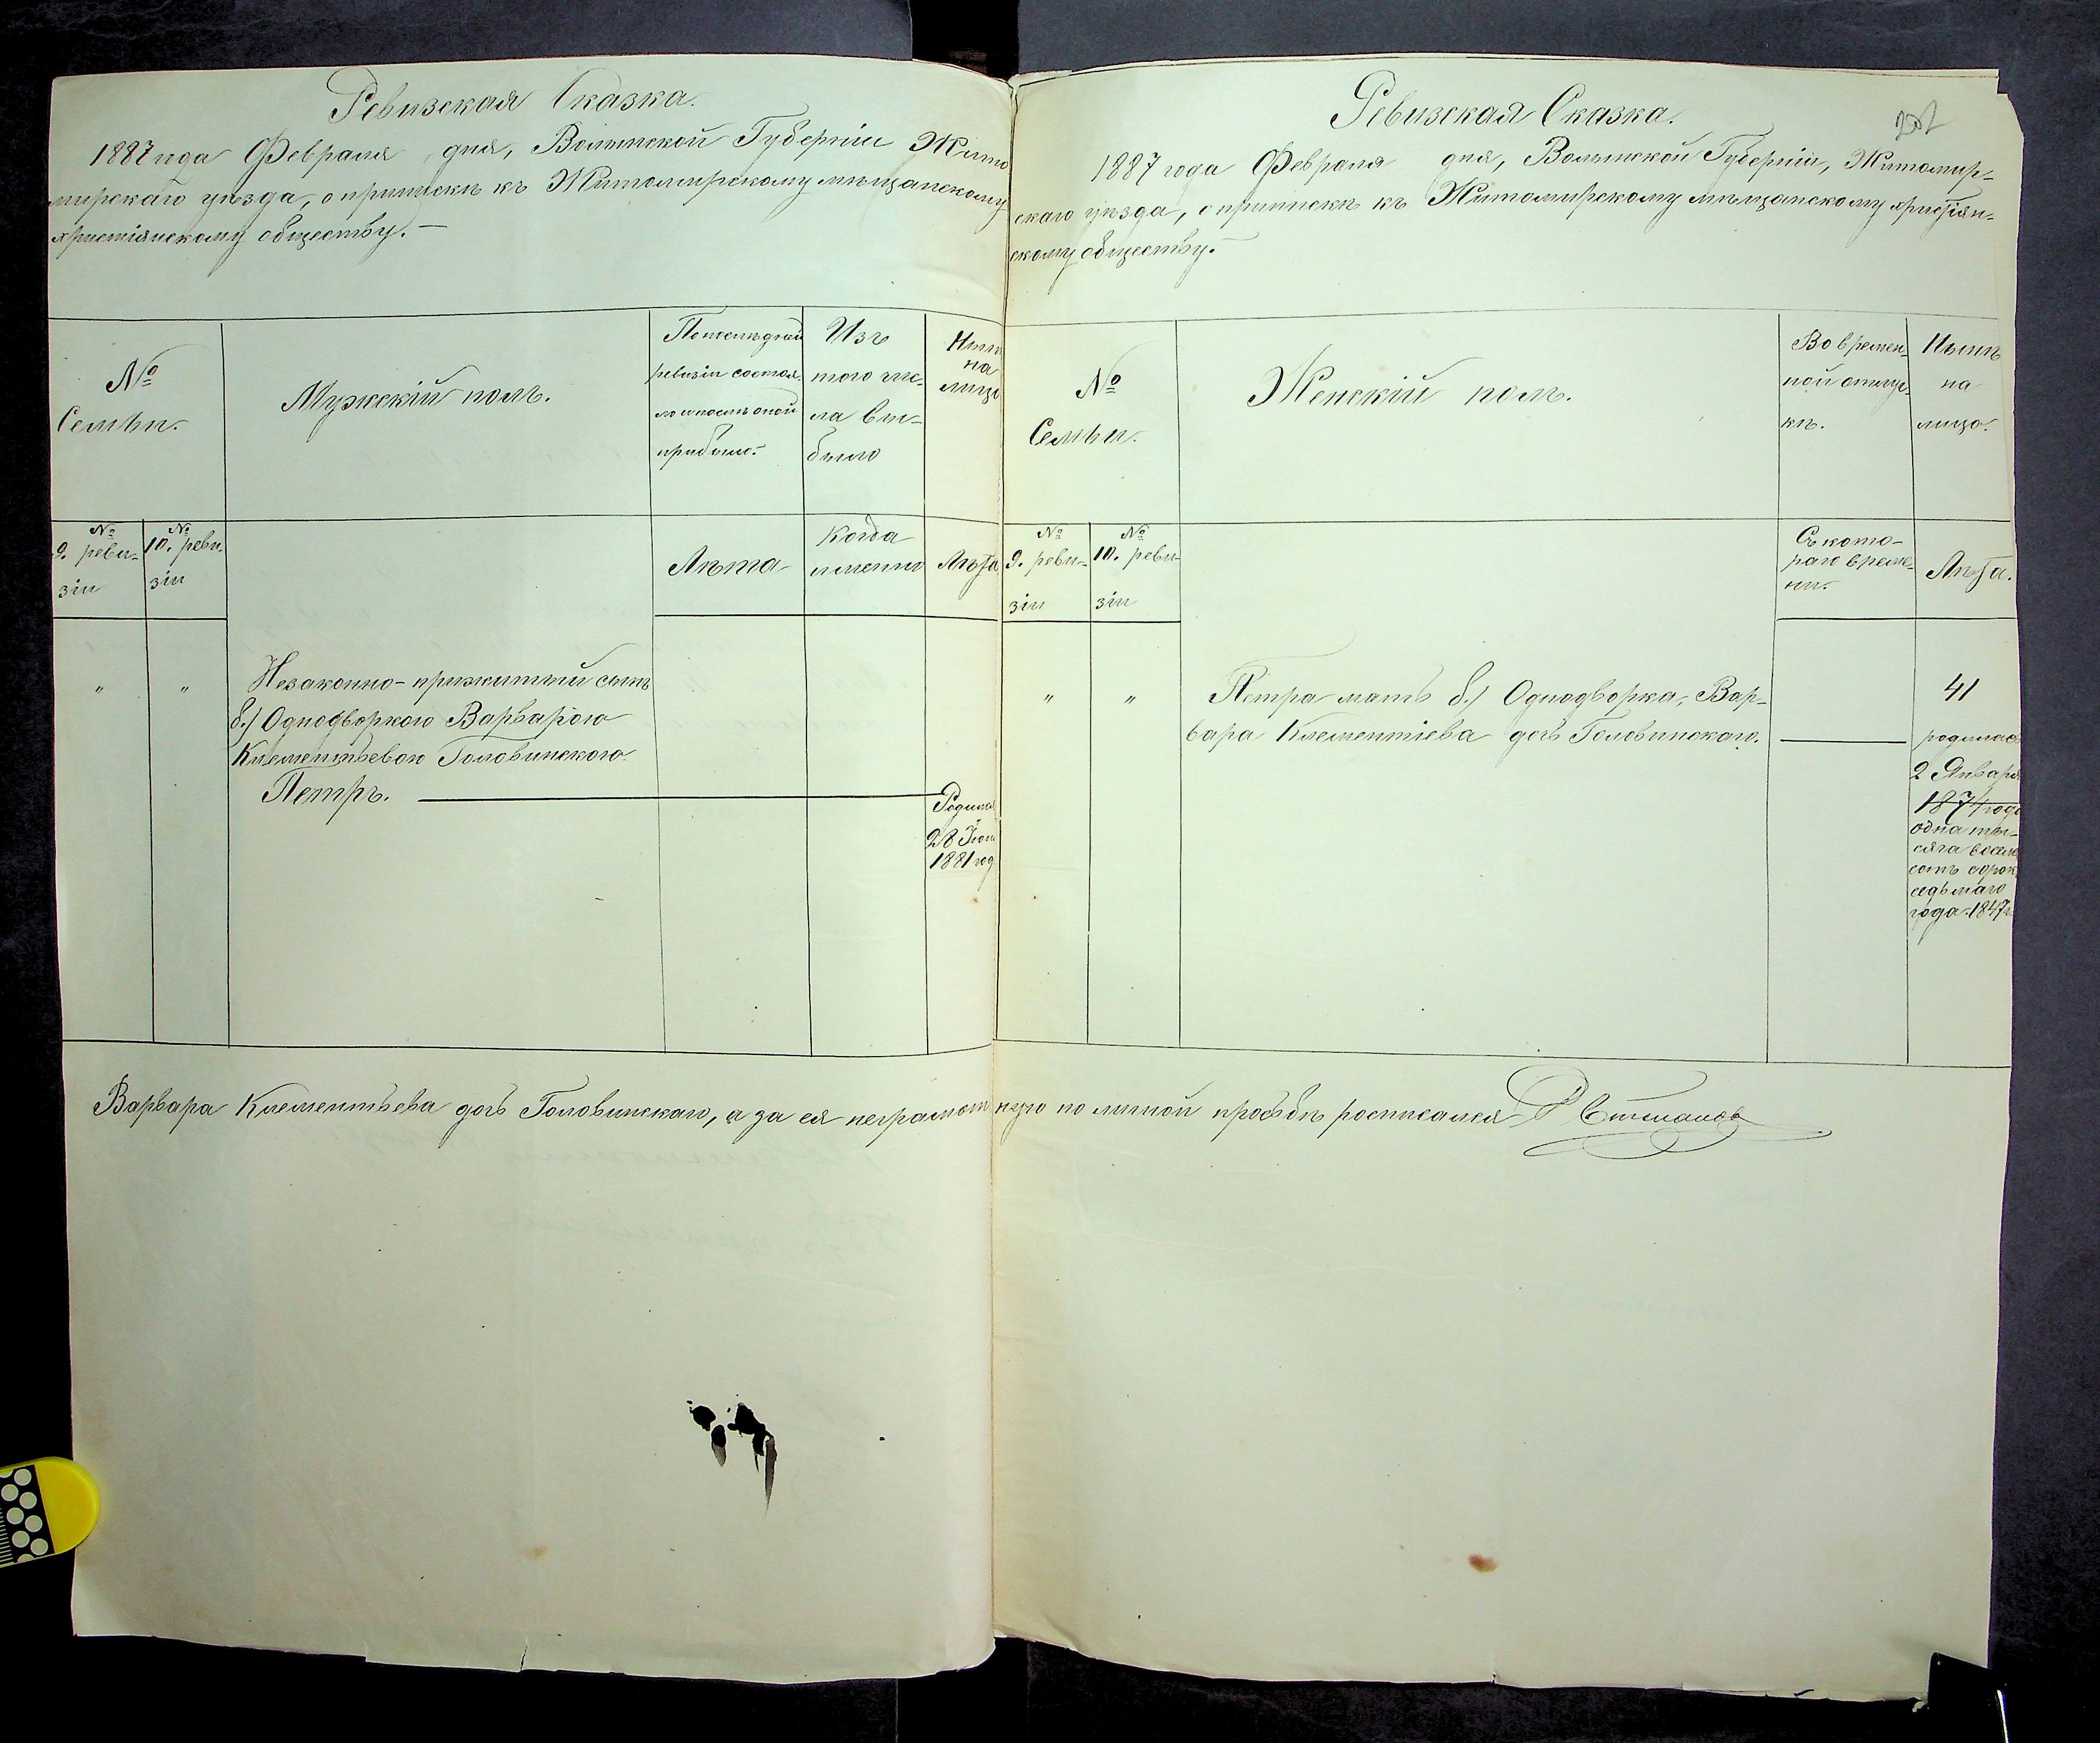 Ревизская Сказка.
1887 года Февраля дня, Волынской Губерніи Жито
мирскаго уѣзда, о припискѣ къ Житомирскому мѣщанскому
христіянскому обществу.—
№
Семьи.
Мужескій полъ.
По послѣдней
ревизіи состоя-
ло и послѣ оной
прибыло.
Изъ
того чис-
ла вы-
было
Нынѣ
на
лицо
№
9. реви-
зіи
№
10. реви-
зіи
Лѣта
Когда
именно
Лѣта
"
"
Незаконно-прижитый сынъ
б.) Однодворкою Варварою
Клементьевою Головинскою
Петръ.
Родился
28 Іюня
1881 год
Ревизская Сказка.
201
1887 года Февраля дня, Волынской Губерніи, Житомир-
скаго уѣзда, о припискѣ къ Житомирскому мѣщанскому христіян-
скому обществу.
№
Семьи.
Женскій полъ.
Во времен-
ной отлуч-
кѣ.
Нынѣ
на
лицо.
№
9. реви-
зіи
№
10. реви-
зіи
Съ кото-
раго време-
ни.
Лѣта.
"
"
Петра мать б.) Однодворка, Вар-
вара Клементіева дочь Головинскаго.
41
родилась
2 Января
1874 года
одна ты-
сяча восемь
сотъ сорок
седьмаго
года 1847 г.
Варвара Клементьева дочь Головинскаго, а за ея неграмотную по личной просьбѣ росписался